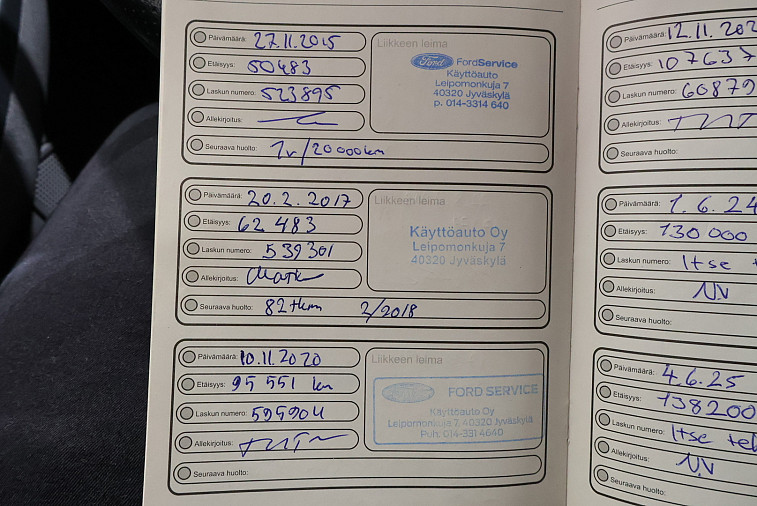 Päivämäärä: 27.11.2015
Etäisyys: 50483
Laskun numero: 523895
Allekirjoitus:
Seuraava huolto: 1v/20000km
Liikkeen leima
Ford FordService
Käyttöauto
Leipomonkuja 7
40320 Jyväskylä
p. 014-3314 640
Päivämäärä: 20.2.2017
Etäisyys: 62 483
Laskun numero: 539301
Allekirjoitus:
Seuraava huolto: 82tkm 2/2018
Liikkeen leima
Käyttöauto Oy
Leipomonkuja 7
40320 Jyväskylä
Päivämäärä: 10.11.2020
Etäisyys: 95 551 km
Laskun numero: 595904
Allekirjoitus:
Seuraava huolto:
Liikkeen leima
FORD SERVICE
Käyttöauto Oy
Leipomonkuja 7 40320 Jyväskylä
Puh. 014-331 4640
Päivämäärä: 12.11.202
Etäisyys: 107637
Laskun numero: 60879
Allekirjoitus:
Seuraava huolto:
Päivämäärä: 1.6.24
Etäisyys: 130 000
Laskun numero: Itse
Allekirjoitus: N.V
Seuraava huolto:
Päivämäärä: 4.6.25
Etäisyys: 138200
Laskun numero: Itse te
Allekirjoitus: N.V
Seuraava huolto: